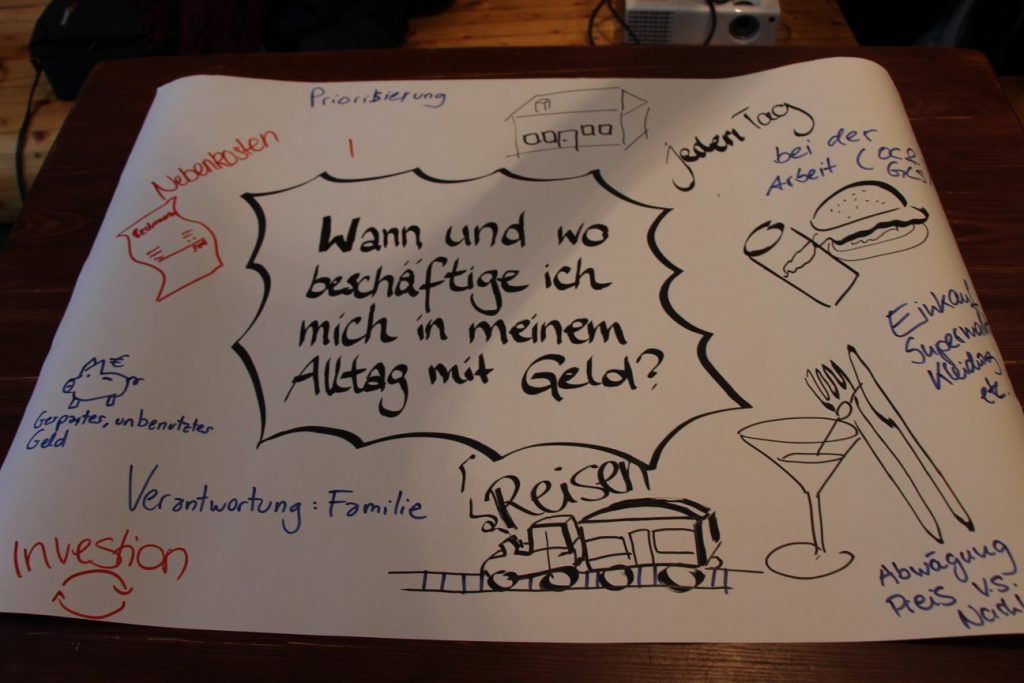 Priorisierung
Nebenkosten
jeden Tag
bei der
Arbeit (
Rechnung
Wann und wo
beschäftige ich
mich in meinem
Alltag mit Geld?
Einkauf
Supermarkt
Kleidung
etc.
€
Gespartes, unbenutztes
Geld
Verantwortung: Familie
Reisen
Investion
Abwägung
Preis v.s.